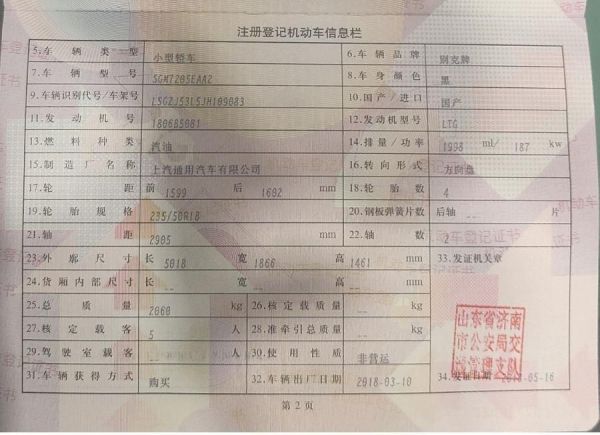 注册登记机动车信息栏
5.车辆类型 小型轿车 6.车辆品牌 别克牌
7.车辆型号 SGM7205EAA2 8.车身颜色 黑
9.车辆识别代号/车架号 LSGZJ53L5JH109083 10.国产/进口 国产
11.发动机号 180685081 12.发动机型号 LTG
13.燃料种类 汽油 14.排量/功率 1998 ml/ 187 kw
15.制造厂名称 上汽通用汽车有限公司 16.转向形式 方向盘
17.轮距 前 1599 后 1602 mm 18.轮胎数 4
19.轮胎规格 235/50R18 20.钢板弹簧片数 后轴 -- 片
21.轴距 2905 mm 22.轴数 2
23.外廓尺寸 长 5018 宽 1866 高 1461 mm 33.发证机关章
24.货厢内部尺寸 长 -- 宽 -- 高 -- mm
25.总质量 2060 kg 26.核定载质量 -- kg
27.核定载客 5 人 28.准牵引总质量 -- kg
29.驾驶室载客 -- 人 30.使用性质 非营运
31.车辆获得方式 购买 32.车辆出厂日期 2018-03-10 34.发证日期 2018-05-16
山东省济南
市公安局交
警管理支队
第2页